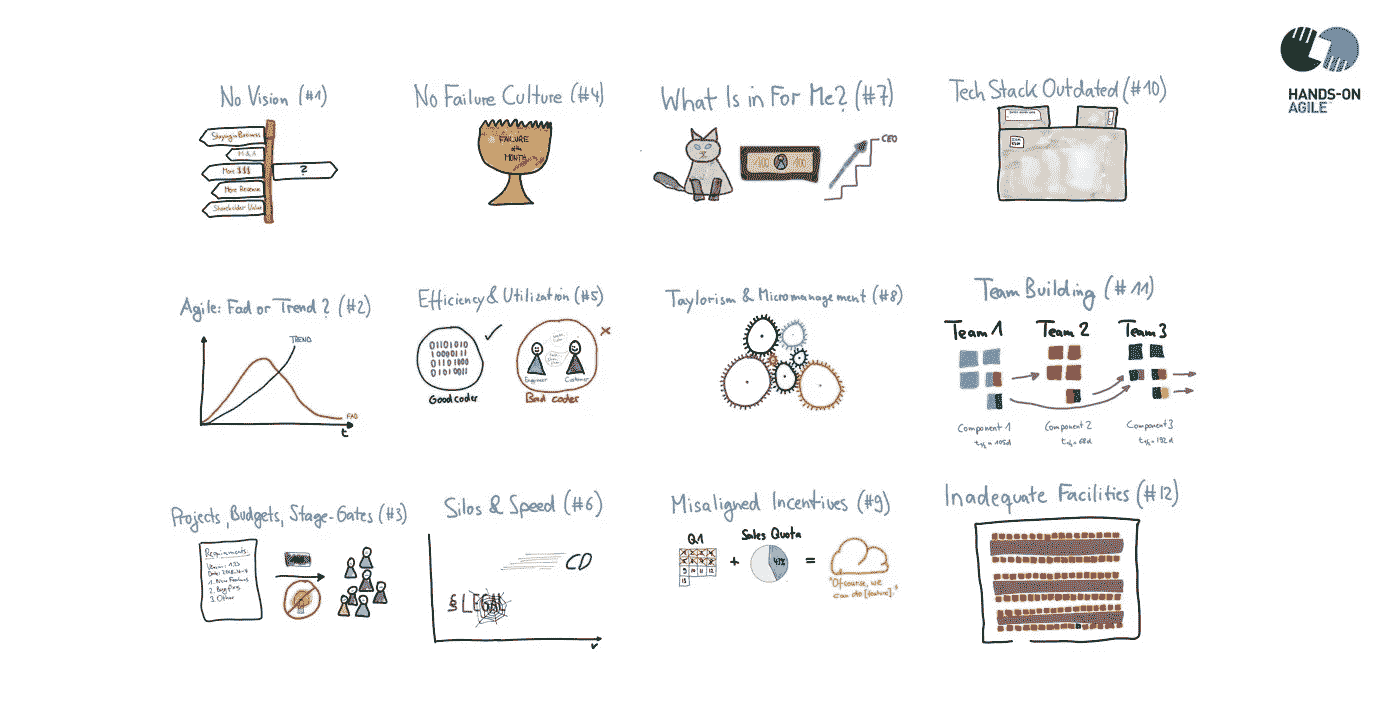 HANDS-ON
AGILE™
No Vision (#1)
Staying in Business
M&A
More $$$
More Revenue
Shareholder Value
?
No Failure Culture (#4)
FAILURE
of the
MONTH
What Is in For Me? (#7)
100
100
CEO
Tech Stack Outdated (#10)
Agile: Fad or Trend? (#2)
TREND
FAD
t
Efficiency & Utilization (#5)
01101010
10000111
01101000
01010011
Good coder
Engineer
Customer
Bad coder
Taylorism & Micromanagement (#8)
Team Building (#11)
Team 1
Team 2
Team 3
Component 1
Component 2
Component 3
Projects, Budgets, Stage-Gates (#3)
Requirements:
1. New Features
2. Bug Fixes
3. Other
Silos & Speed (#6)
CD
§ LEGAL
v
Misaligned Incentives (#9)
Q1
Sales Quota
9 10 11 12
13
+
43%
=
"Of course, we
can do [feature]."
Inadequate Facilities (#12)